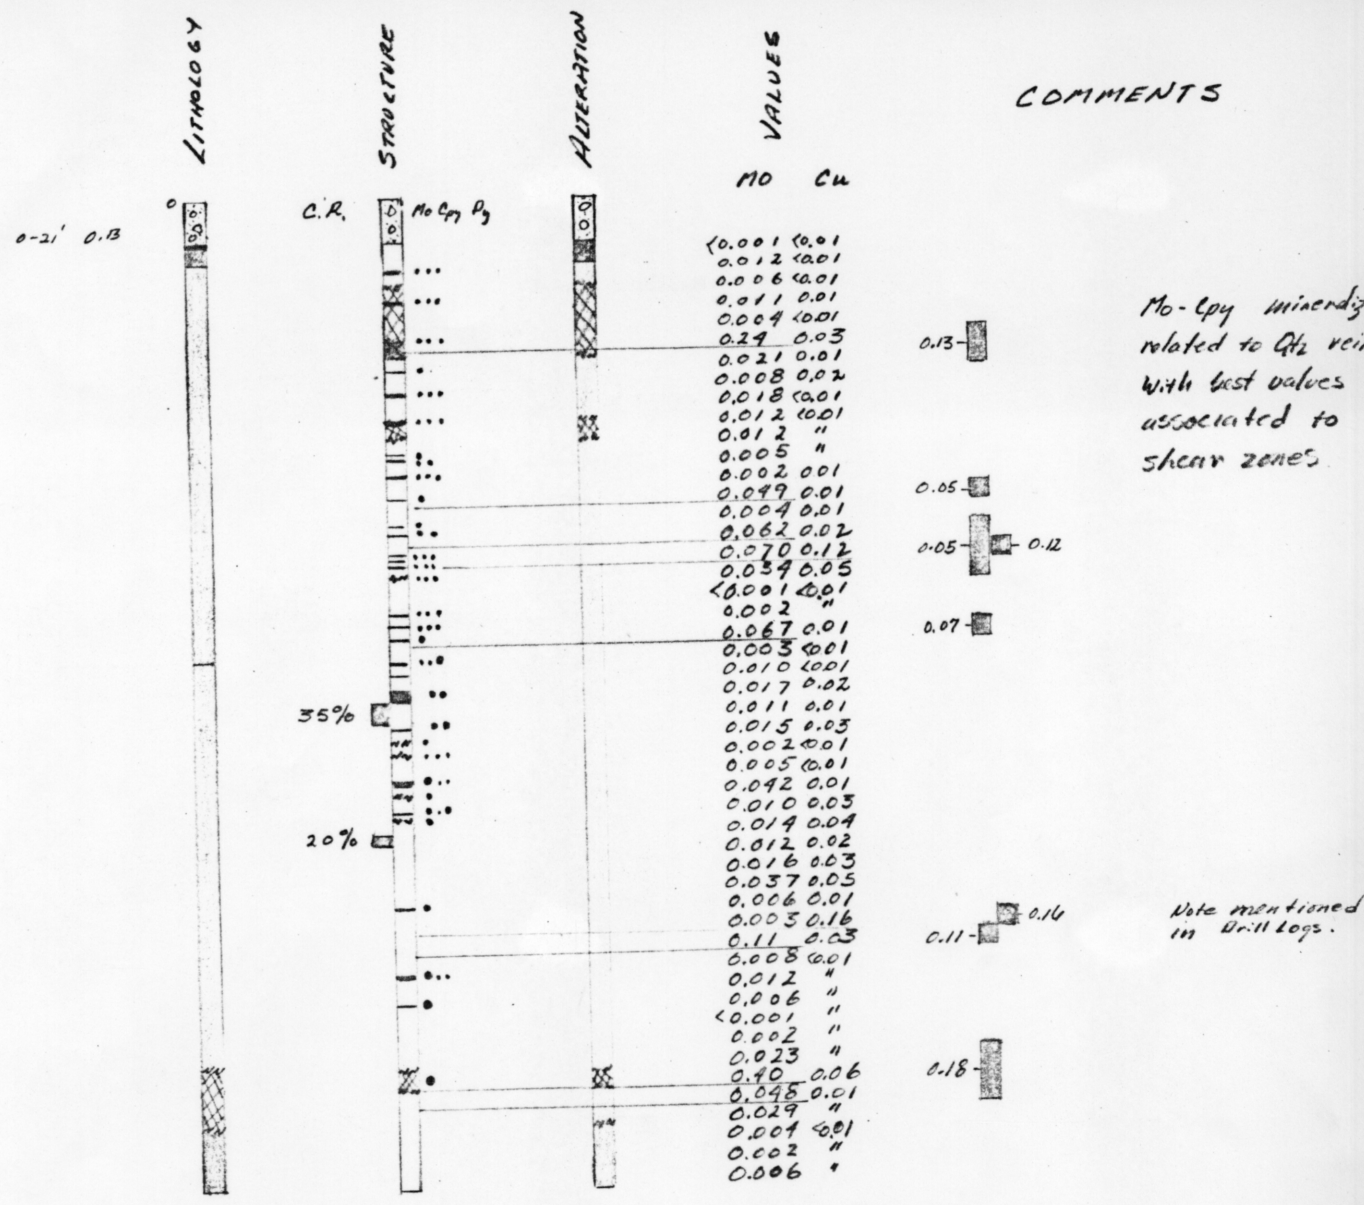 LITHOLOGY
STRUCTURE
ALTERATION
VALUES
COMMENTS
MO Cu
0
C.R.
Mo Cpy Py
0-21' 0.13
<0.001 <0.01
0.012 <0.01
0.006 <0.01
0.011 0.01
0.004 <0.01
0.24 0.03
0.021 0.01
0.008 0.02
0.018 <0.01
0.012 <0.01
0.012 "
0.005 "
0.002 001
0.049 0.01
0.004 0.01
0.062 0.02
0.070 0.12
0.034 0.05
<0.001 <0.01
0.002 "
0.067 0.01
0.003 <0.01
0.010 <0.01
0.017 0.02
0.011 0.01
0.015 0.03
0.002 <0.01
0.005 <0.01
0.042 0.01
0.010 0.03
0.014 0.04
0.012 0.02
0.016 0.03
0.037 0.05
0.006 0.01
0.003 0.16
0.11 0.03
0.008 <0.01
0.012 "
0.006 "
<0.001 "
0.002 "
0.023 "
0.40 0.06
0.048 0.01
0.029 "
0.004 <0.01
0.002 "
0.006 "
35%
20%
0.13
0.05
0.05 0.12
0.07
0.16
0.11
0.18
Mo-Cpy
related to Qtz
with best values
associated to
shear zones
Note mentioned
in Drill Logs.